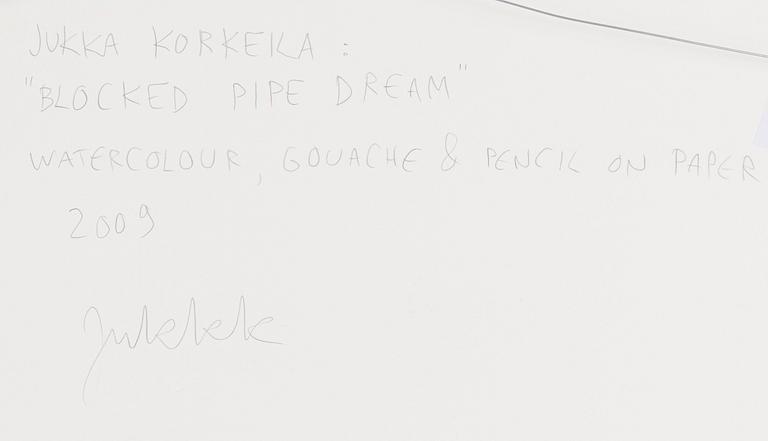 JUKKA KORKEILA :
"BLOCKED PIPE DREAM"
WATERCOLOUR, GOUACHE & PENCIL ON PAPER
2009